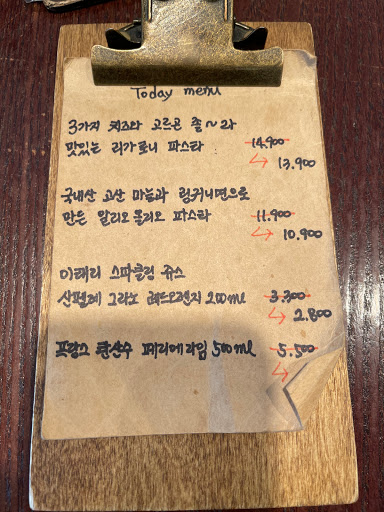 Today menu
3가지 치즈와 고르곤 졸~라
맛있는 리가토니 파스타 14.900
↳ 13.900
국내산 고산 마늘과 링귀니면으로
만든 알리오 올리오 파스타 11.900
↳ 10.900
이태리 스파클링 쥬스
산펠레그리노 레드오렌지 200ml 3.300
↳ 2.800
프랑스 탄산수 페리에 라임 500ml 5.500
↳